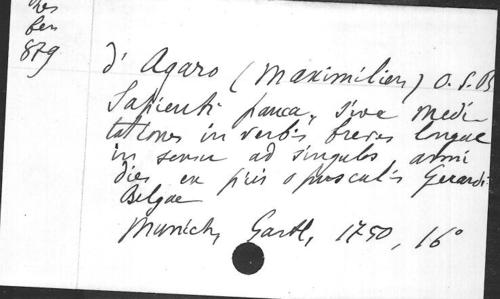 res
ben
879
d' Agaro (Maximilien) O.S.B
Sapienti pauca, sive medi-
tationes in verbis breves longae
in sensu ad singulos anni
dies ex piis opusculis Gerardi
Belgae
Munich, Gartl, 1750, 16°